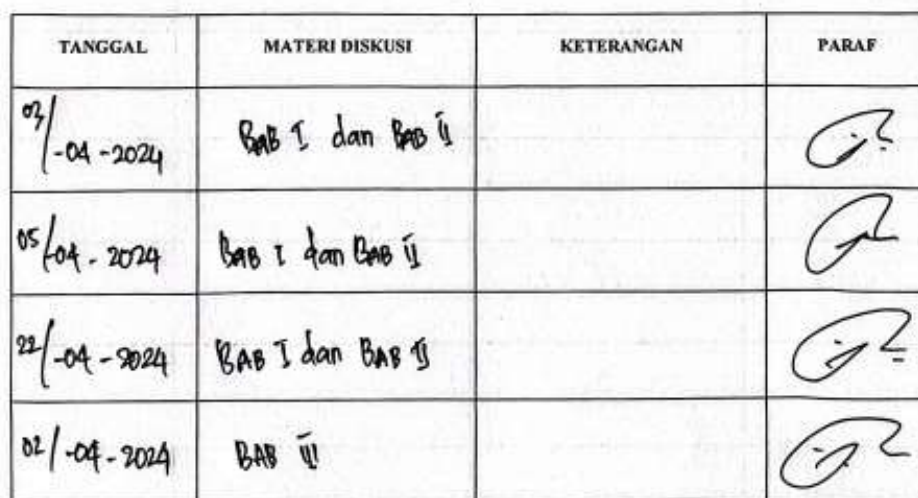 TANGGAL MATERI DISKUSI KETERANGAN PARAF
03/-04-2024 BAB I dan BAB II
05/-04-2024 BAB I dan BAB II
22/-04-2024 BAB I dan BAB II
02/-04-2024 BAB III